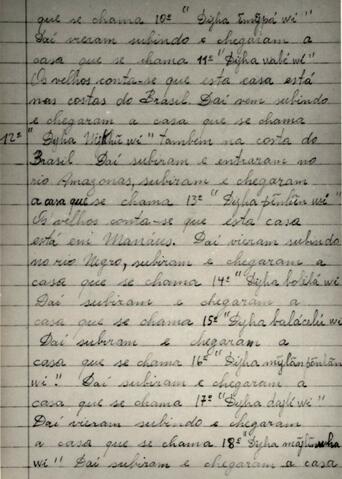 que se chama 10ª "Diyha ũmũpá wi"
Daí vieram subindo e chegaram a
casa que se chama 11ª "Diyha vabé wi"
Os velhos conta-se que esta casa está
nas costas do Brasil. Daí vem subindo
e chegaram a casa que se chama
12ª "Diyha wi" também na costa do
Brasil Daí subiram e entraram no
rio Amazonas, subiram e chegaram
a casa que se chama 13ª "Diyha pũnlũn wi"
Os velhos conta-se que esta casa
está em Manaus. Daí vieram subindo
no rio Negro, subiram e chegaram a
casa que se chama 14ª "Diyha bolitá wi
Daí subiram e chegaram a
casa que se chama 15ª "Diyha baláculú wi
Daí subiram e chegaram a
casa que se chama 16ª "Diyha
wi" Daí subiram e chegaram a
casa que se chama 17ª "Diyha dajé wi"
Daí vieram subindo e chegaram
a casa que se chama 18ª Diyha
wi" Daí subiram e chegaram a casa